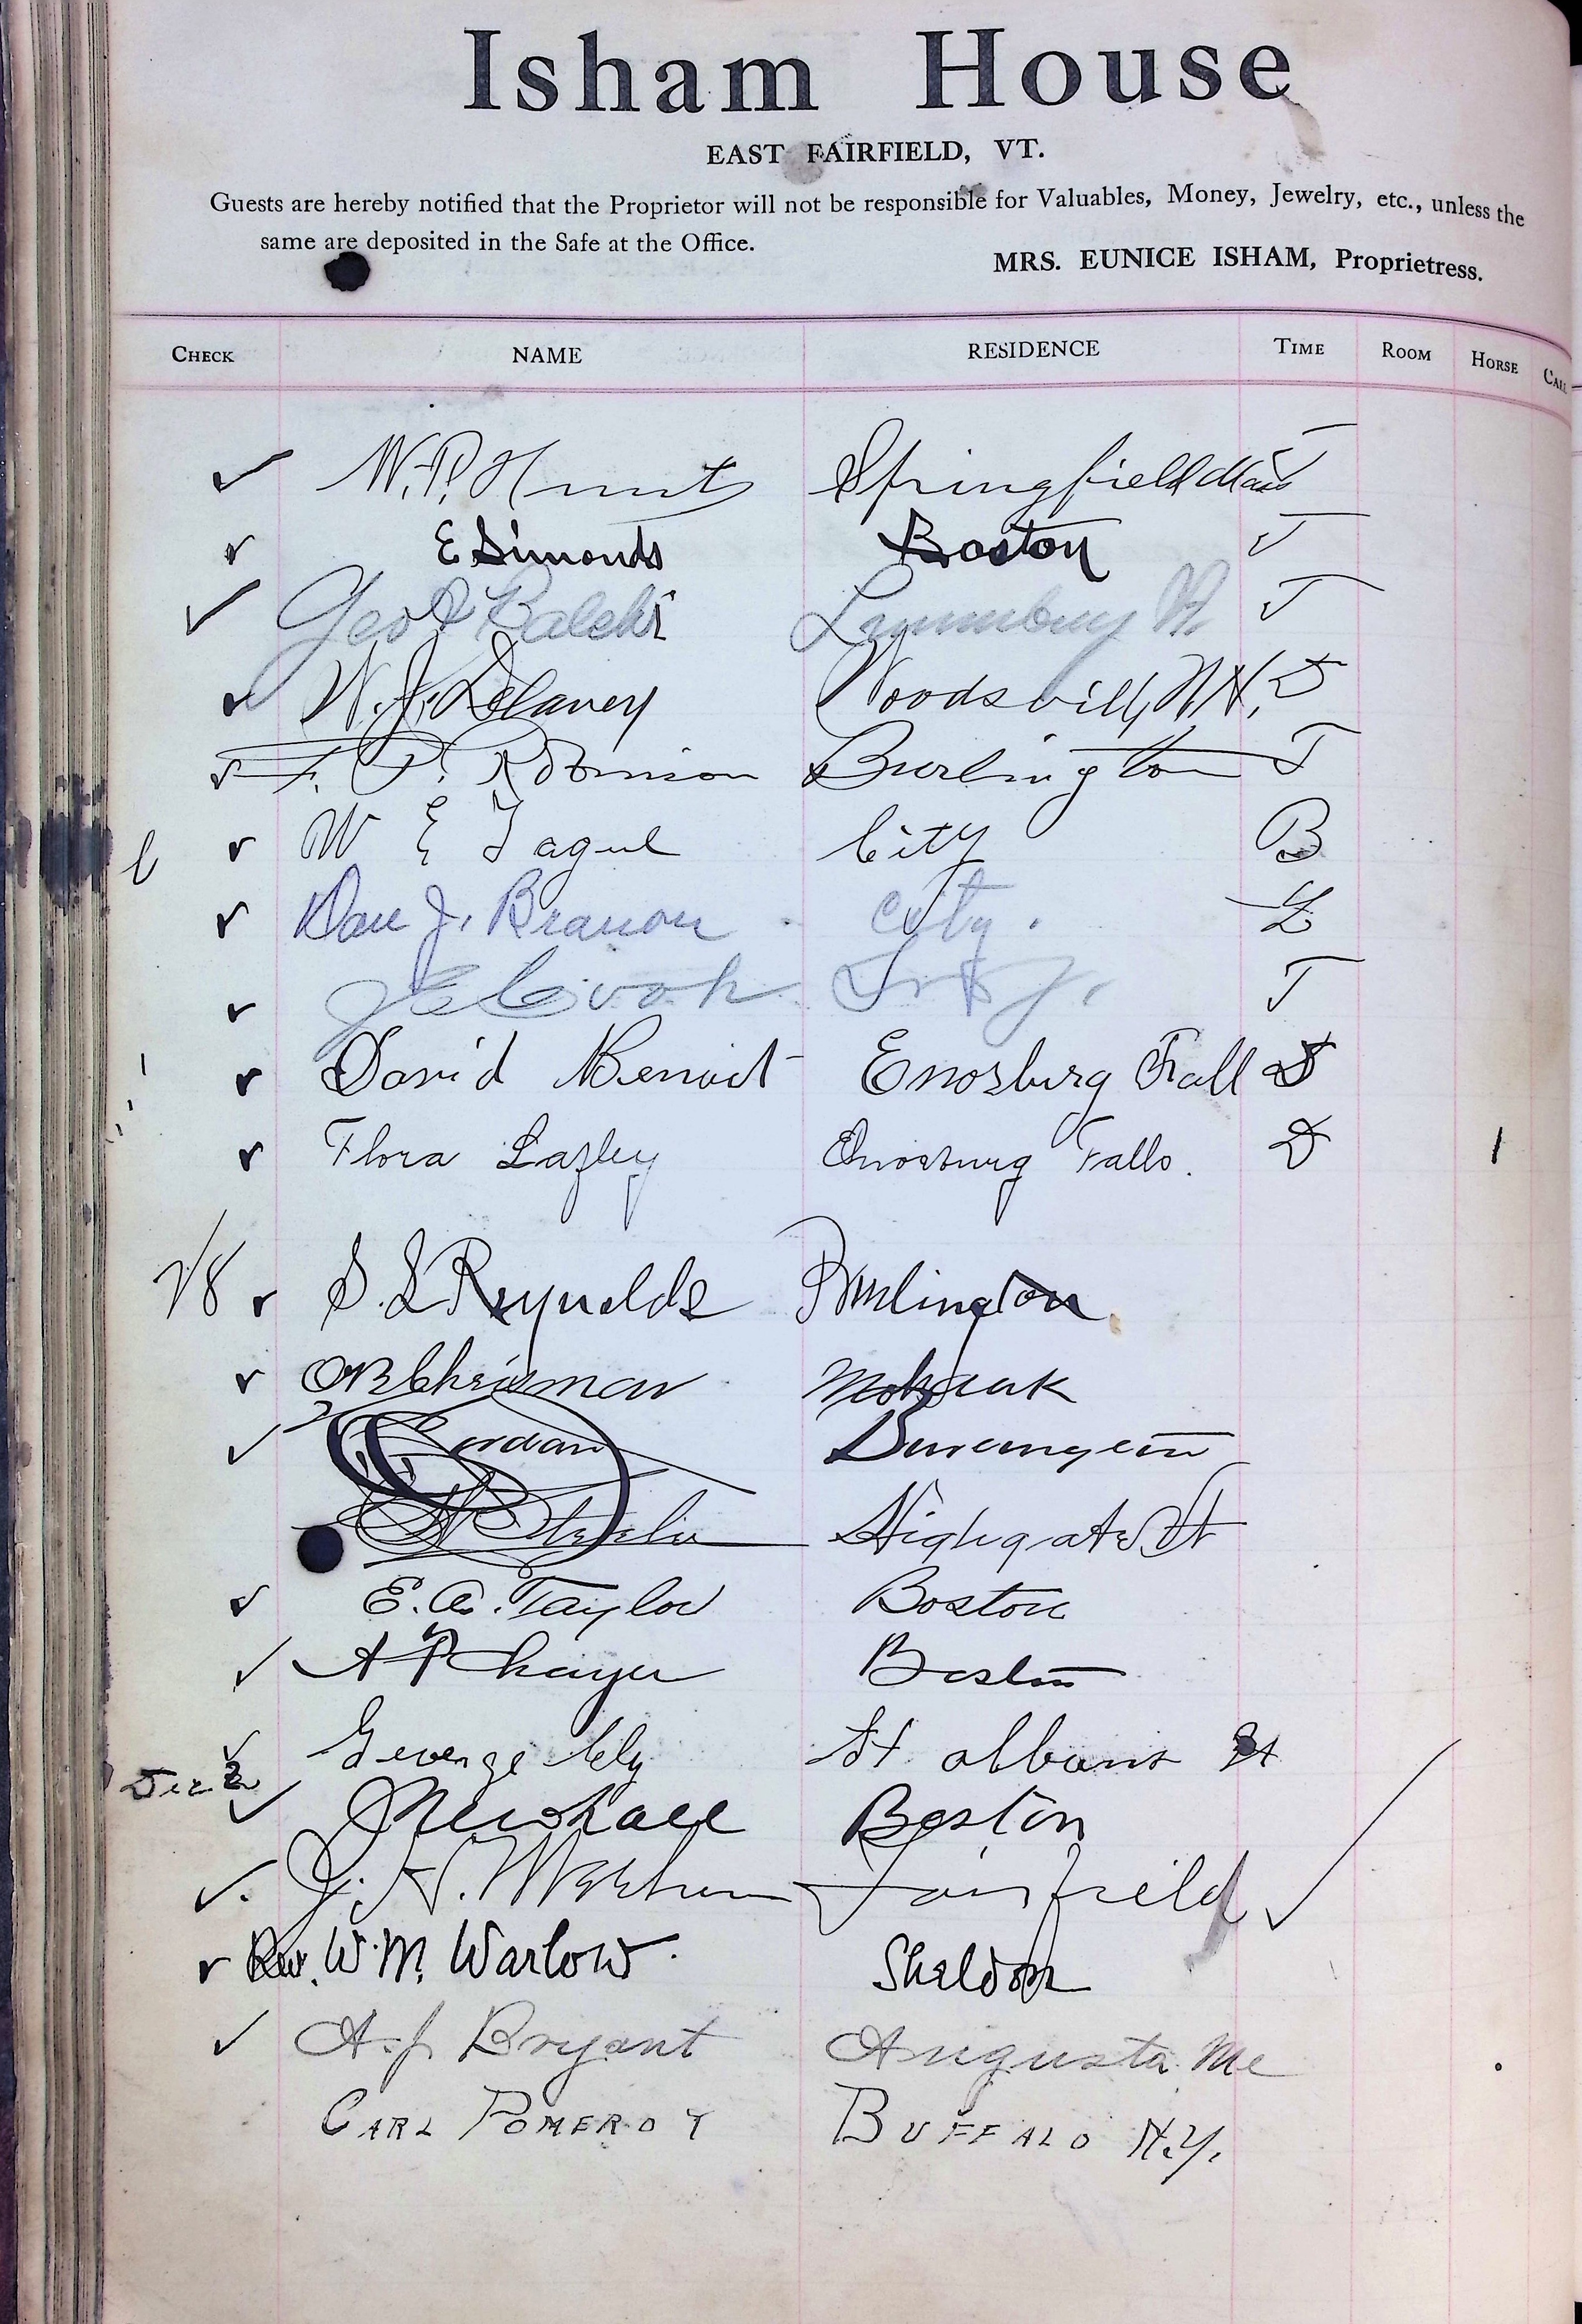 Isham House
EAST FAIRFIELD, VT.
Guests are hereby notified that the Proprietor will not be responsible for Valuables, Money, Jewelry, etc., unless the
same are deposited in the Safe at the Office.
MRS. EUNICE ISHAM, Proprietress.
CHECK NAME RESIDENCE TIME ROOM HORSE CALL
W. P. Hunt Springfield Mass T
E Simonds Boston T
Geo Balch T
W. J. Delaney Woodsville, N.H. D
F. P. Robinson Burlington T
W E City B
Dan J. Branon City. L
J E Cook T
David Benoit Enosburg Fall D
Flora Lafley Enosburg Falls. D 1
S. L Reynolds Burlington
Mohawk
Jordan
Highgate Vt
E. A. Taylor Boston
A P Thayer Boston
George Ely St albans Vt
Dec 2
Newhall Boston
J. H. Fairfield
Rev. W. M. Warlow. Sheldon
A. J. Bryant Augusta Me
CARL POMEROY BUFFALO N.Y.